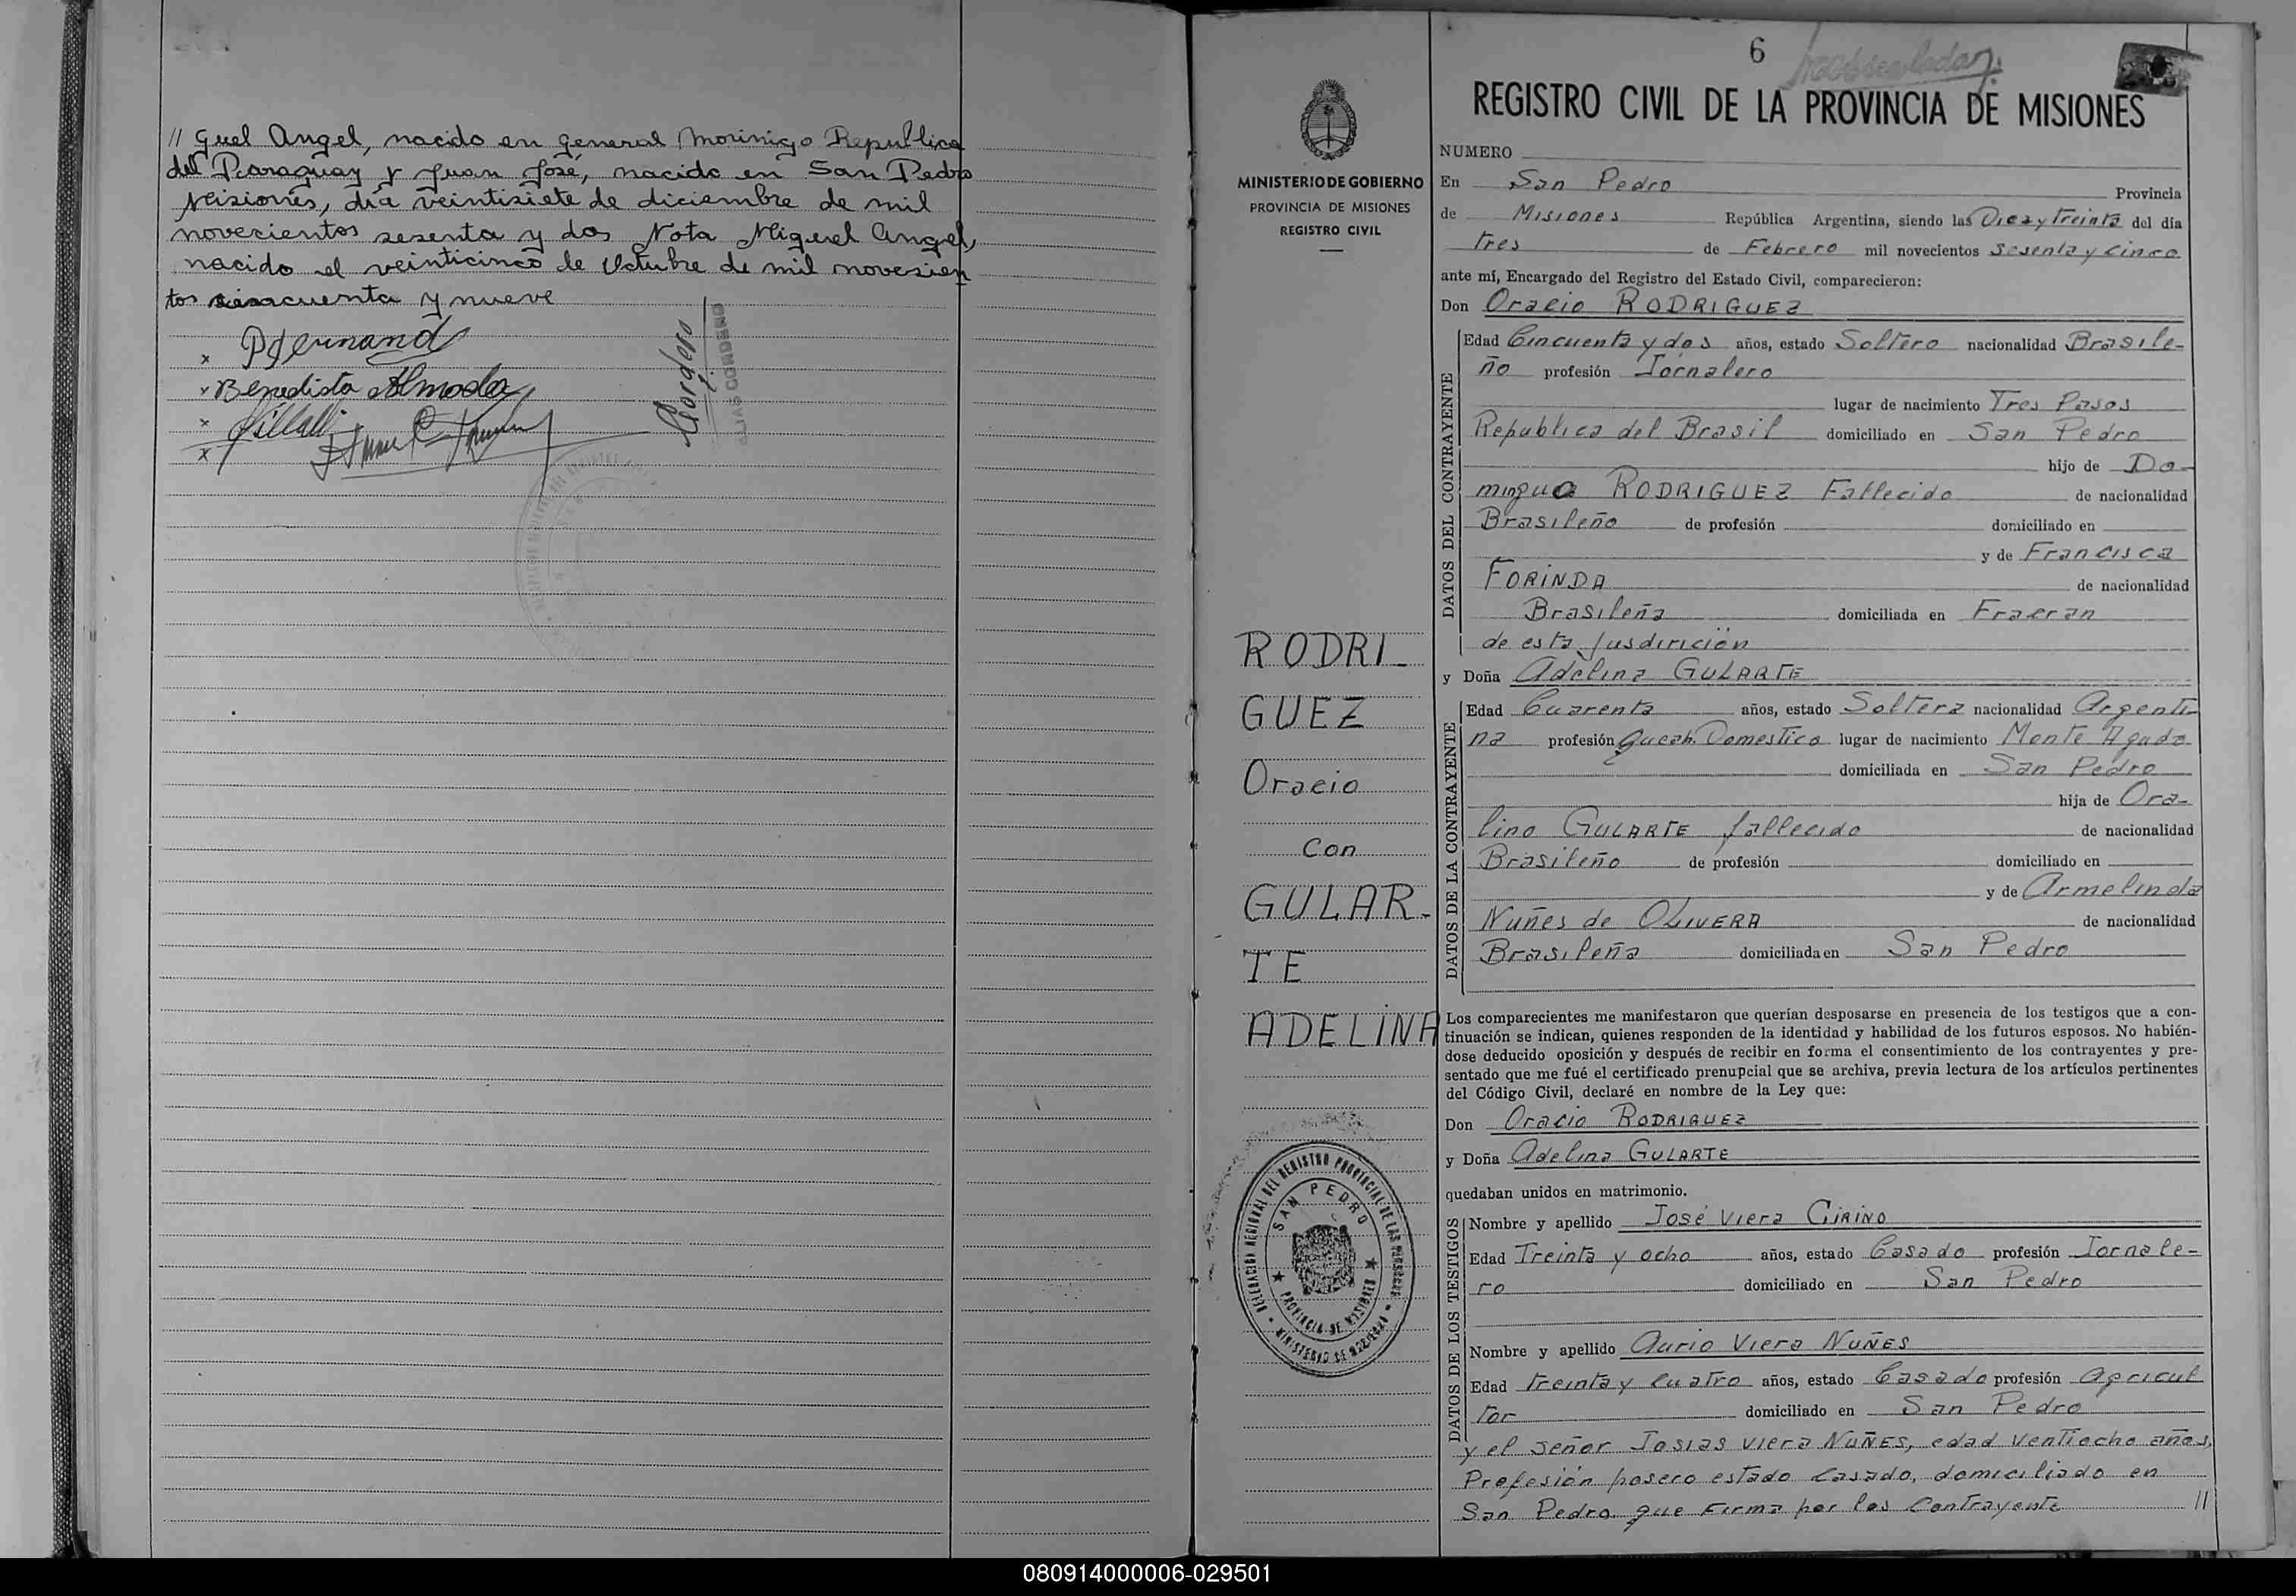 // guel Angel, nacido en general Morinigo Republica
del Paraguay y Juan José, nacido en San Pedro
Misiones, día veintisiete de diciembre de mil
novecientos sesenta y dos Nota Miguel Angel,
nacido el veinticinco de Octubre de mil novesien
tos cincuenta y nueve
x
x Benedista Almada
x
x
Cordero
ELIAS CORDERO
6
REGISTRO CIVIL DE LA PROVINCIA DE MISIONES
MINISTERIO DE GOBIERNO
PROVINCIA DE MISIONES
REGISTRO CIVIL
NUMERO
En San Pedro Provincia
de Misiones República Argentina, siendo las Diez y Treinta del día
Tres de Febrero mil novecientos Sesenta y Cinco
ante mí, Encargado del Registro del Estado Civil, comparecieron:
Don Oracio RODRIGUEZ
DATOS DEL CONTRAYENTE
Edad Cincuenta y dos años, estado Soltero nacionalidad Brasile-
ño profesión Jornalero
lugar de nacimiento Tres Pasos
Republica del Brasil domiciliado en San Pedro
hijo de Do-
mingua RODRIGUEZ Fallecido de nacionalidad
Brasileño de profesión domiciliado en
y de Francisca
FORINDA de nacionalidad
Brasileña domiciliada en Fracran
de esta Jusdirición
y Doña Adelina GULARTE
DATOS DE LA CONTRAYENTE
Edad Cuarenta años, estado Soltera nacionalidad Argenti-
na profesión Queah. Domestico lugar de nacimiento Monte Agudo
domiciliada en San Pedro
hija de Ora-
lino GULARTE fallecido de nacionalidad
Brasileño de profesión domiciliado en
y de Armelinda
Nuñes de OLIVERA de nacionalidad
Brasileña domiciliada en San Pedro
RODRI-
GUEZ
Oracio
Con
GULAR-
TE
ADELINA
Los comparecientes me manifestaron que querían desposarse en presencia de los testigos que a con-
tinuación se indican, quienes responden de la identidad y habilidad de los futuros esposos. No habién-
dose deducido oposición y después de recibir en forma el consentimiento de los contrayentes y pre-
sentado que me fué el certificado prenupcial que se archiva, previa lectura de los artículos pertinentes
del Código Civil, declaré en nombre de la Ley que:
Don Oracio RODRIGUEZ
y Doña Adelina GULARTE
quedaban unidos en matrimonio.
DATOS DE LOS TESTIGOS
Nombre y apellido José Viera CIRINO
Edad Treinta y ocho años, estado Casado profesión Jornale-
ro domiciliado en San Pedro
Nombre y apellido Aurio Viera NUÑES
Edad treinta y cuatro años, estado Casado profesión Agricul
tor domiciliado en San Pedro
y el señor Josias Viera NUÑES, edad ventiocho años,
Profesión posero estado Casado, domiciliado en
San Pedro que Firma por los Contrayente //
DELEGACION REGIONAL DEL REGISTRO PROVINCIAL DE LAS PERSONAS
SAN PEDRO
PROVINCIA DE MISIONES
MINISTERIO DE GOBIERNO
080914000006-029501